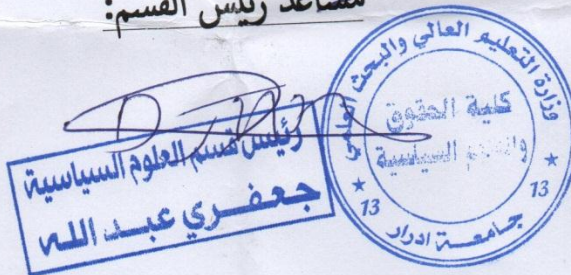 مساعد رئيس القسم:
وزارة التعليم العالي والبحث العلمي
كلية الحقوق
والعلوم السياسية
13
13
جامعة ادرار
رئيس قسم العلوم السياسية
جعفري عبد الله